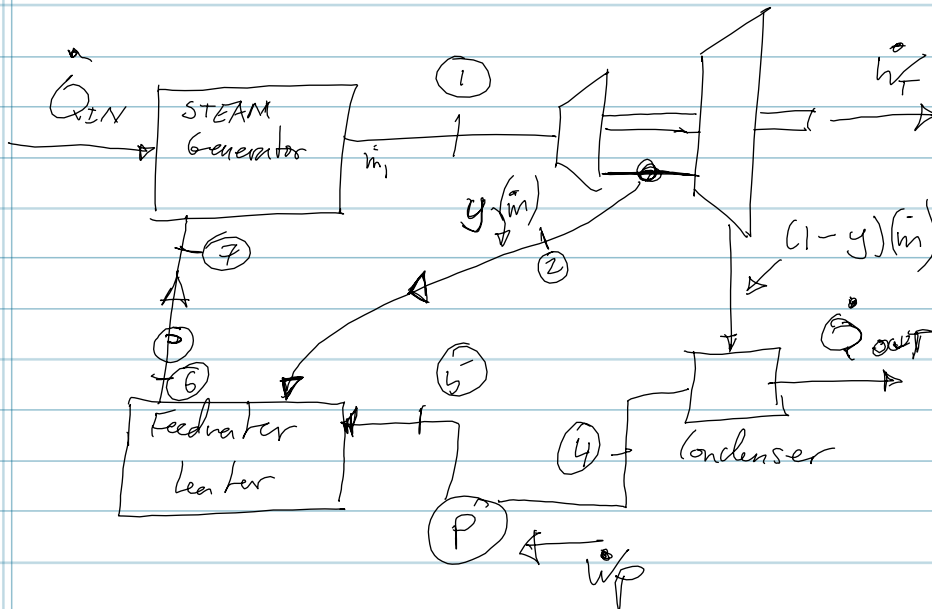 Q̇IN
STEAM
Generator
1
ṁ1
ẆT
y(ṁ)
2
(1-y)(ṁ)
7
Q̇OUT
P
6
5
Feedwater
heater
4
Condenser
P
Ẇp